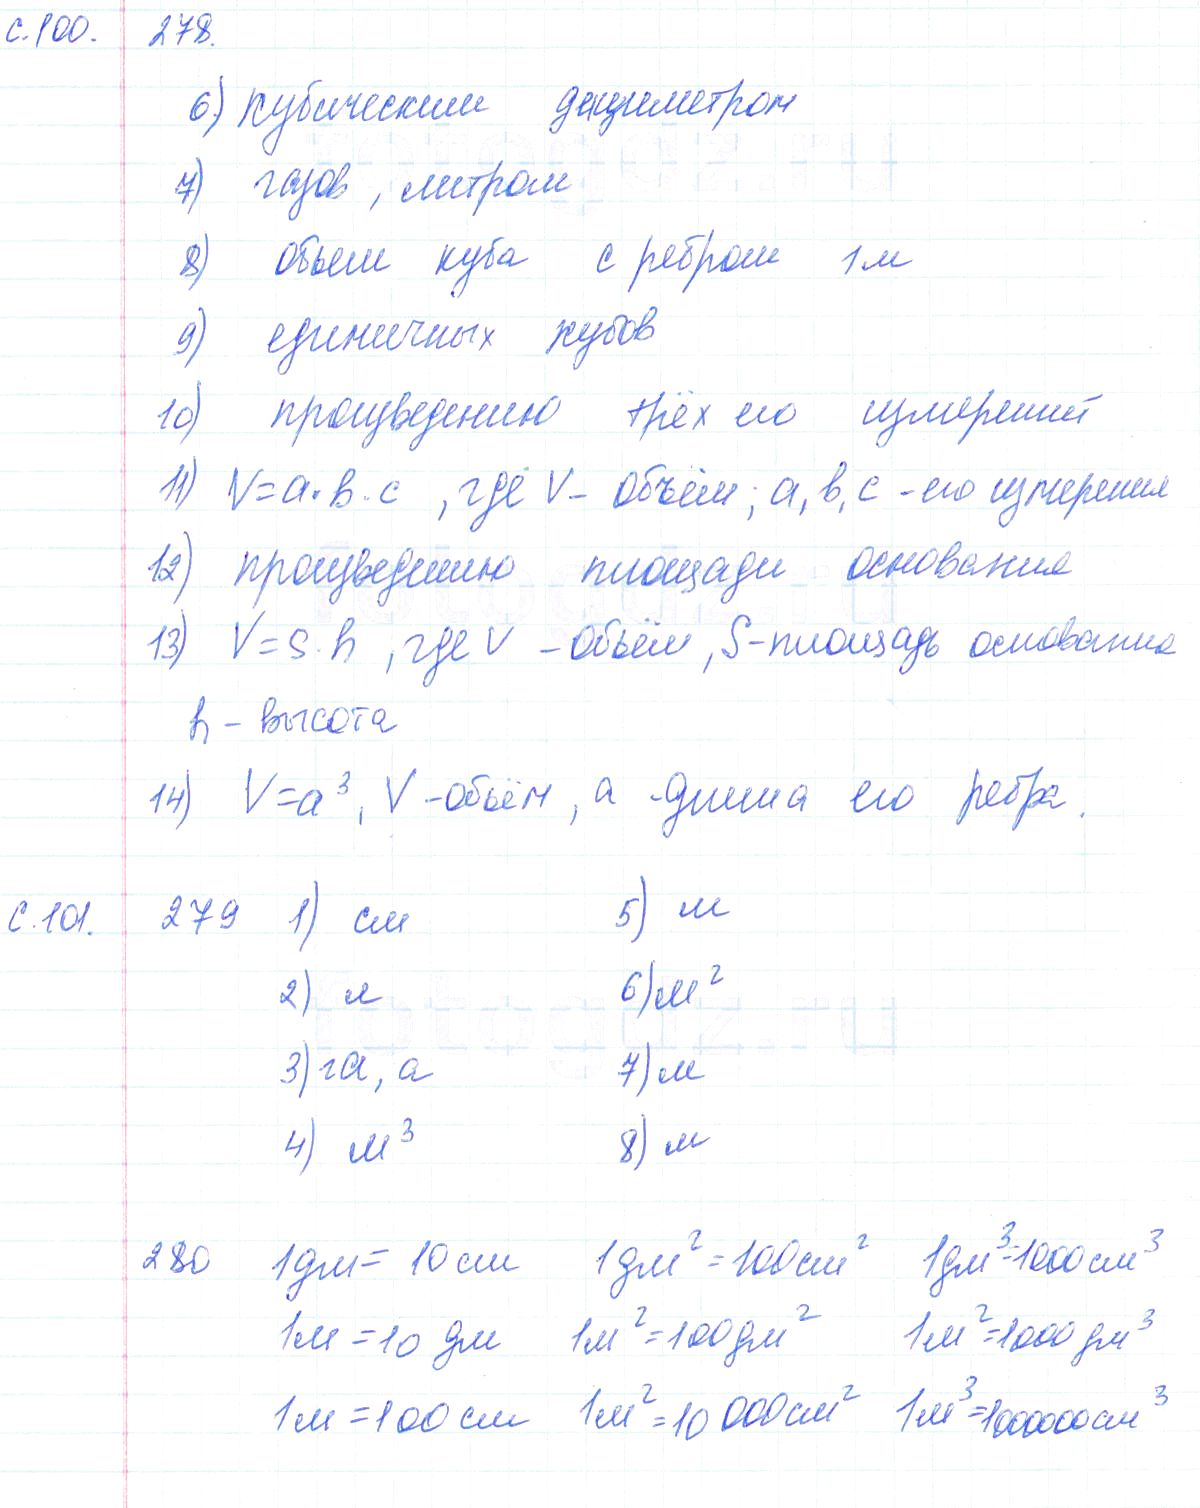 с.100. 278.
6) кубическим дециметром
7) газов, литром
8) объем куба с ребром 1 м
9) единичных кубов
10) произведению трёх его измерений
11) V=a·b·c, где V- объём; a, b, c -его измерения
12) произведению площади основания
13) V=S·h, где V -объём, S-площадь основания
h - высота
14) V=a³, V -объём, a -длина его ребра.
с.101. 279 1) см 5) м
2) м 6) м²
3) га, а 7) м
4) м³ 8) м
280 1дм= 10 см 1дм²=100см² 1дм³=1000см³
1м =10 дм 1м²=100дм² 1м²=1000дм³
1м =100 см 1м²=10 000см² 1м³=1000000см³